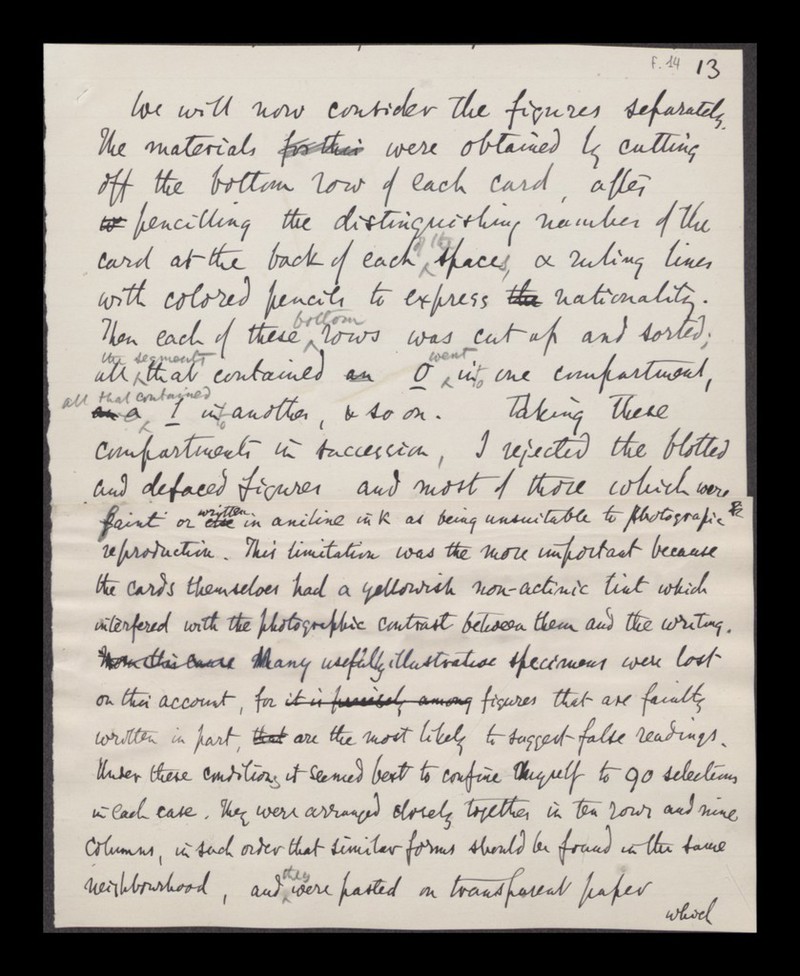 F. 14 13
We will now consider the figures separately.
The materials for this were obtained by cutting
off the bottom row of each card, after
pencilling the distinguishing number of the
of the
card at the back of each spaces, & ruling lines
with colored pencils to express the nationality.
bottom
Then each of these rows was cut up and sorted;
the segments went
all that contained an 0 into one compartment,
all that contained
an a 1 into another, & so on. Taking these
compartments in succession, I rejected the blotted
and defaced figures and most of those which were
written
faint or else in aniline ink as being unsuitable to photografic
reproduction. This limitation was the more important because
the cards themselves had a yellowish non-actinic tint which
interfered with the photographic contrast between them and the writing.
From this cause Many usefully illustrative specimens were lost
on this account, for it is precisely among figures that are faintly
written in part, that are the most likely to suggest false readings.
Under these conditions it seemed best to confine myself to 90 selections
in each case. They were arranged closely together in ten rows and nine
columns, in such order that similar forms should be found in the same
they
neighbourhood, and were pasted on transparent paper
which